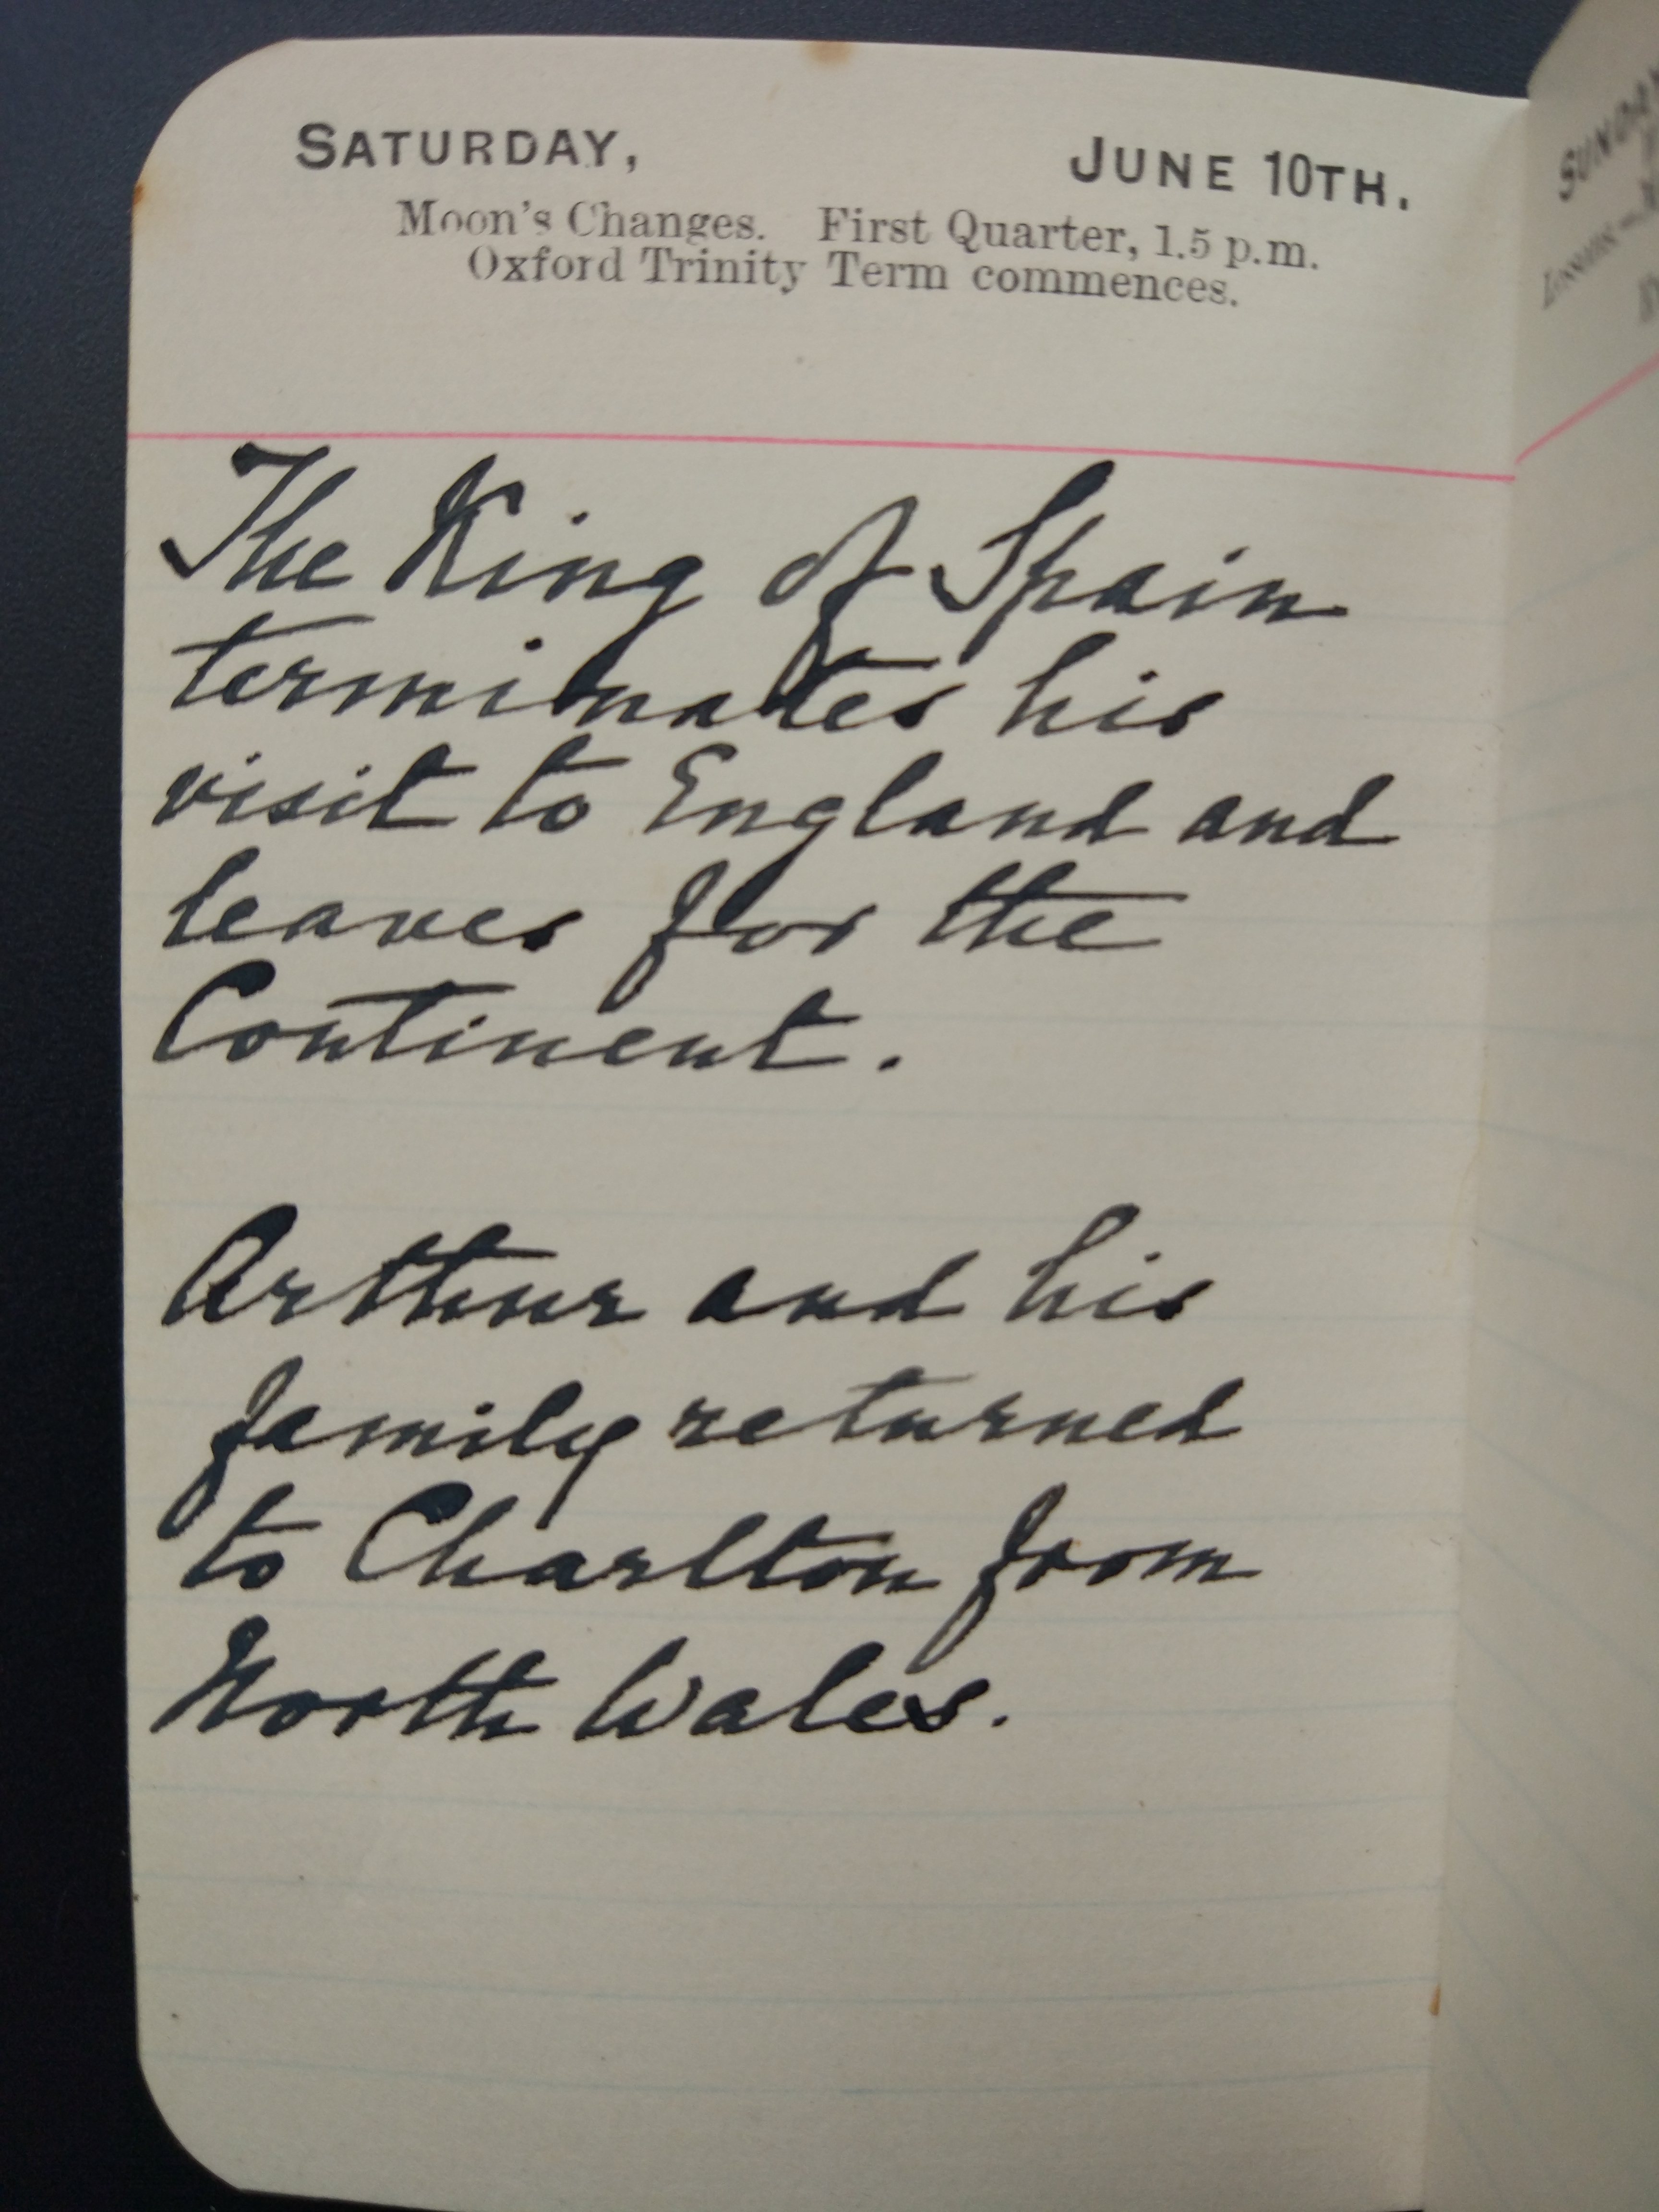 SATURDAY, JUNE 10TH.
Moon's Changes. First Quarter, 1.5 p.m.
Oxford Trinity Term commences.
The King of Spain
terminates his
visit to England and
leaves for the
Continent.
Arthur and his
family returned
to Charlton from
North Wales.